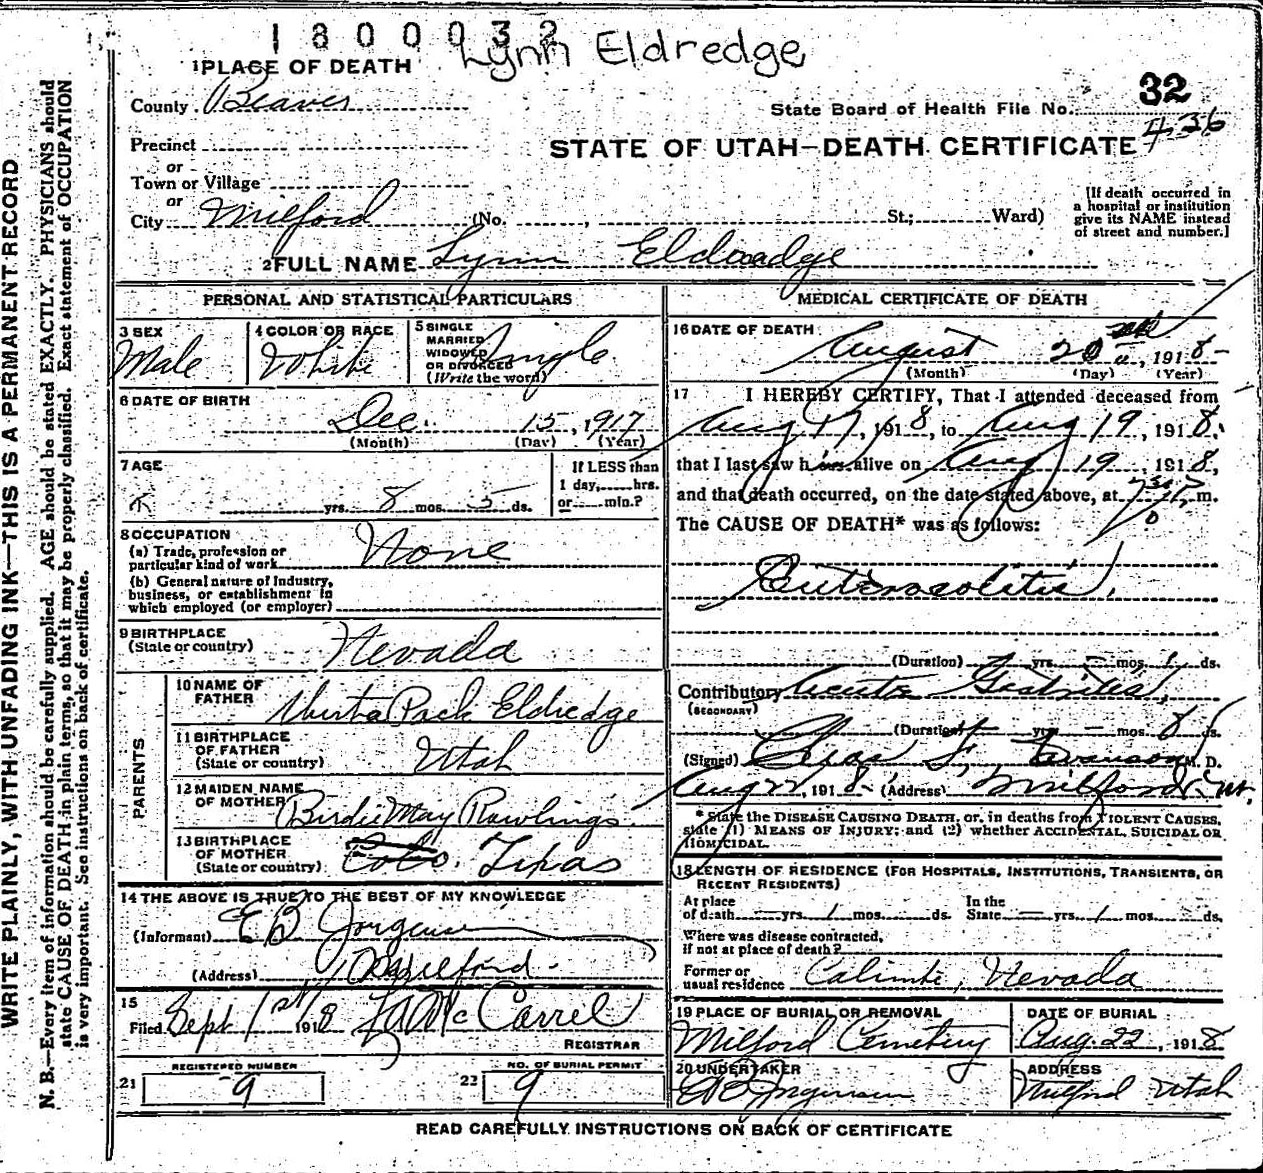 1800032
Lynn Eldredge
1 PLACE OF DEATH
County Beaver
State Board of Health File No. 32
436
Precinct
or
STATE OF UTAH—DEATH CERTIFICATE
Town or Village
or
City Milford (No. , St.; Ward)
[If death occurred in
a hospital or institution
give its NAME instead
of street and number.]
2 FULL NAME Lynn Eldraadge
PERSONAL AND STATISTICAL PARTICULARS
3 SEX
Male
4 COLOR OR RACE
White
5 SINGLE
MARRIED
WIDOWED
OR DIVORCED
(Write the word)
Single
6 DATE OF BIRTH
Dec. 15, 1917
(Month) (Day) (Year)
7 AGE
yrs. 8 mos. 5 ds.
If LESS than
1 day, hrs.
or min.?
8 OCCUPATION
(a) Trade, profession or
particular kind of work None
(b) General nature of Industry,
business, or establishment in
which employed (or employer)
9 BIRTHPLACE
(State or country) Nevada
PARENTS
10 NAME OF
FATHER
Pack Eldredge
11 BIRTHPLACE
OF FATHER
(State or country) Utah
12 MAIDEN NAME
OF MOTHER Birdie May Rawlings
13 BIRTHPLACE
OF MOTHER
(State or country) Colo. Texas
14 THE ABOVE IS TRUE TO THE BEST OF MY KNOWLEDGE
(Informant) E B Jorgensen
(Address) Milford
15
Filed Sept 1st 1918 Mc Carrel
REGISTRAR
REGISTERED NUMBER
21 9
NO. OF BURIAL PERMIT
22 9
MEDICAL CERTIFICATE OF DEATH
16 DATE OF DEATH
August 20, 1918
(Month) (Day) (Year)
17 I HEREBY CERTIFY, That I attended deceased from
Aug 17, 1918, to Aug 19, 1918,
that I last saw him alive on Aug 19, 1918,
and that death occurred, on the date stated above, at 7 m.
The CAUSE OF DEATH* was as follows:
Enterocolitis,
(Duration) yrs. mos. ds.
Contributory Acute Gastritis,
(SECONDARY)
(Duration) yrs. — mos. 8 ds.
(Signed) M. D.
Aug 22, 1918 (Address) Milford, Ut.
* State the DISEASE CAUSING DEATH, or, in deaths from VIOLENT CAUSES,
state (1) MEANS OF INJURY; and (2) whether ACCIDENTAL, SUICIDAL OR
HOMICIDAL.
18 LENGTH OF RESIDENCE (FOR HOSPITALS, INSTITUTIONS, TRANSIENTS, OR
RECENT RESIDENTS)
At place In the
of death — yrs. 1 mos. ds. State — yrs. 1 mos. ds.
Where was disease contracted,
if not at place of death?
Former or
usual residence Calinte, Nevada
19 PLACE OF BURIAL OR REMOVAL
Milford Cemetery
DATE OF BURIAL
Aug. 22, 1918
20 UNDERTAKER
E B Jorgensen
ADDRESS
Milford Utah
READ CAREFULLY INSTRUCTIONS ON BACK OF CERTIFICATE
WRITE PLAINLY, WITH UNFADING INK—THIS IS A PERMANENT RECORD
N. B.—Every item of information should be carefully supplied. AGE should be stated EXACTLY. PHYSICIANS should
state CAUSE OF DEATH in plain terms, so that it may be properly classified. Exact statement of OCCUPATION
is very important. See instructions on back of certificate.